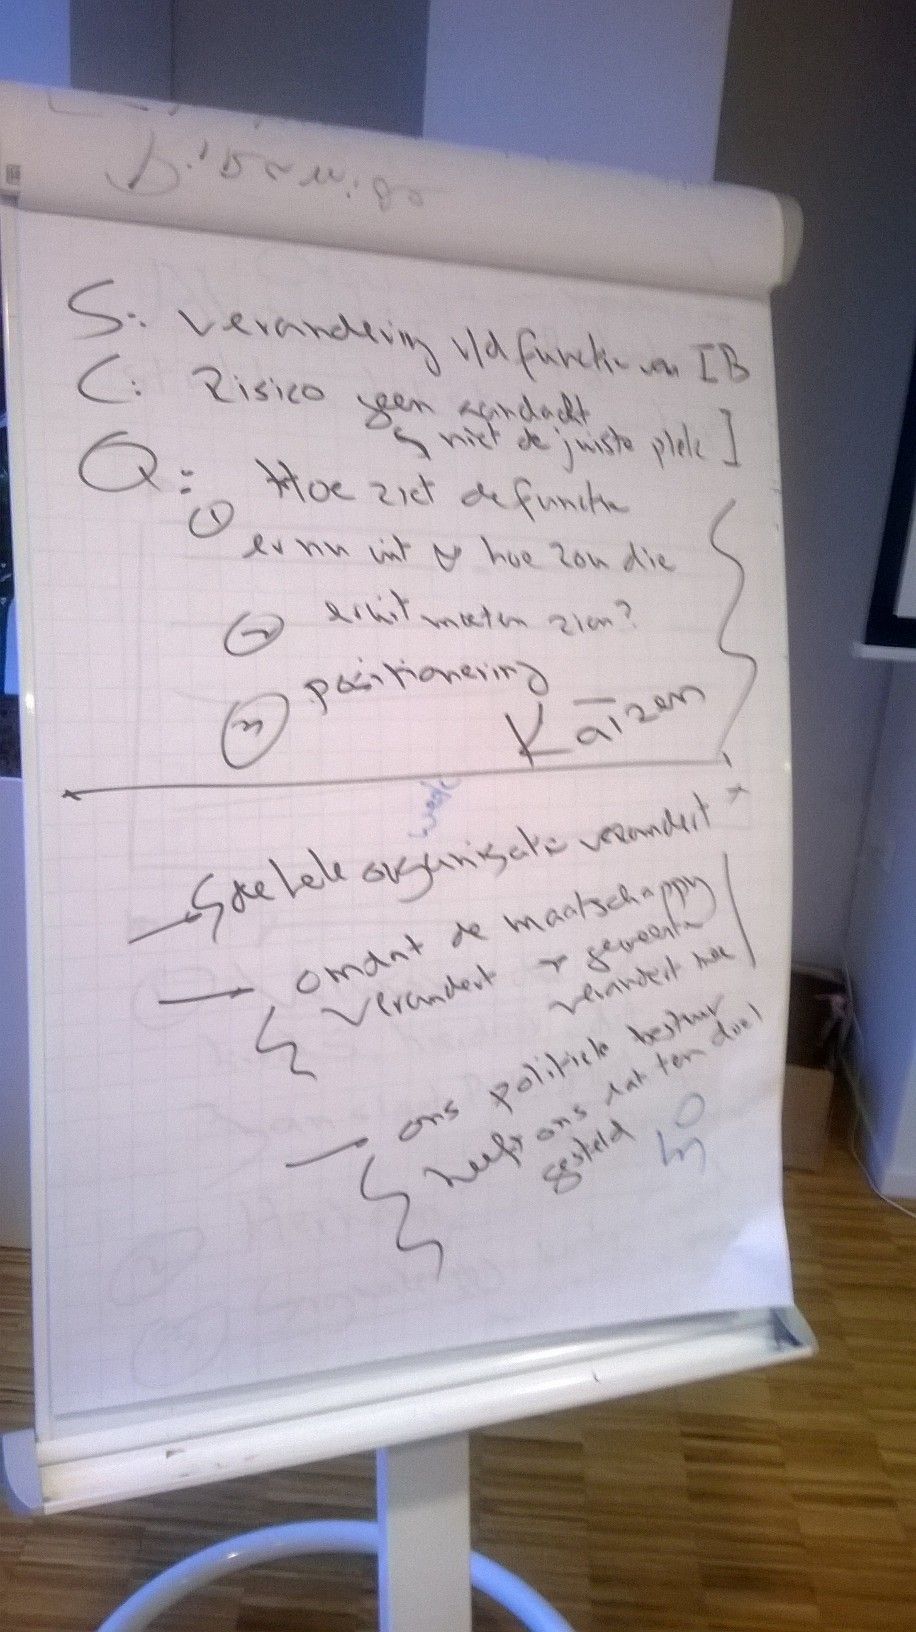 S: verandering v/d functie van IB
C: Risico geen aandacht
niet de juiste plek ]
Q: Hoe ziet de functie
1
er nu uit & hoe zou die
2 eruit moeten zien?
3 positionering
Kaizen
de hele organisatie verandert
omdat de maatschappy
verandert → gemeente
verandert mee
ons politieke bestuur
heeft ons dat ten doel
gesteld